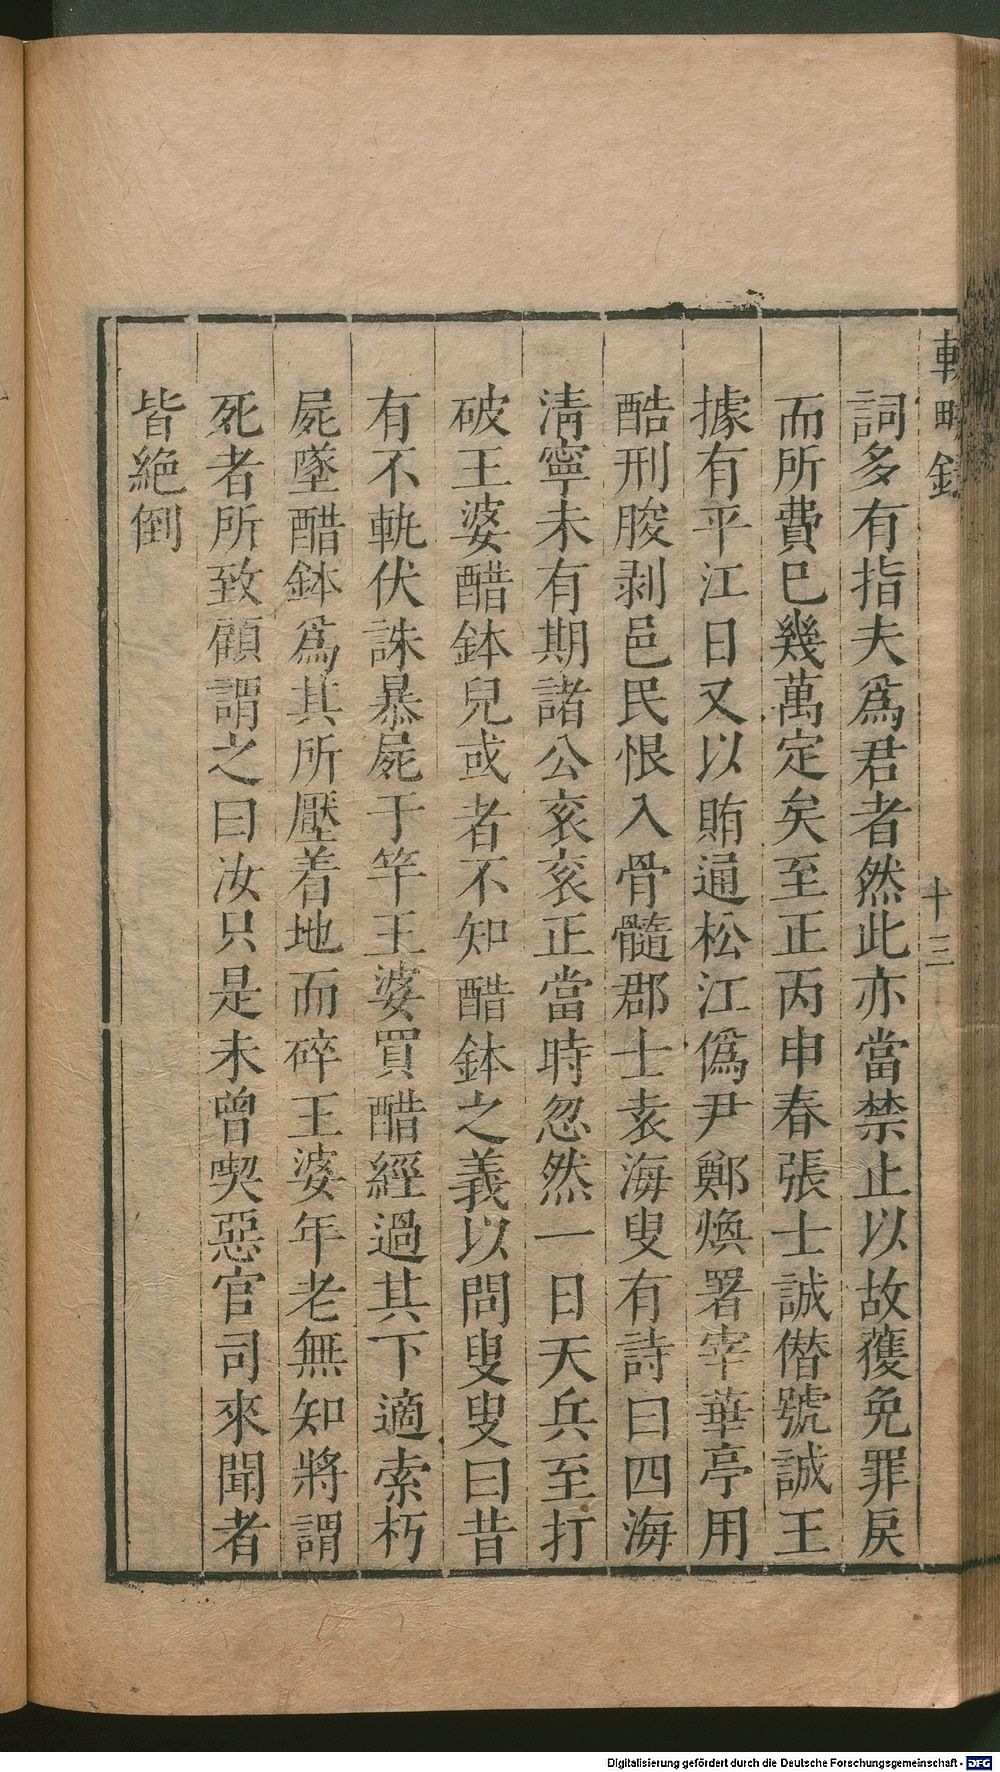 輟畊錄
十三
詞多有指夫爲君者然此亦當禁止以故獲免罪戾
而所費巳幾萬定矣至正丙申春張士誠僣號誠王
據有平江日又以賄通松江僞尹鄭煥署宰華亭用
酷刑朘剥邑民恨入骨髓郡士袁海叟有詩曰四海
清寧未有期諸公衮衮正當時忽然一日天兵至打
破王婆醋鉢兒或者不知醋鉢之義以問叟叟曰昔
有不軌伏誅暴屍于竿王婆買醋經過其下適索朽
屍墜醋鉢爲其所壓着地而碎王婆年老無知將謂
死者所致顧謂之曰汝只是未曾喫惡官司來聞者
皆絶倒
Digitalisierung gefördert durch die Deutsche Forschungsgemeinschaft - DFG